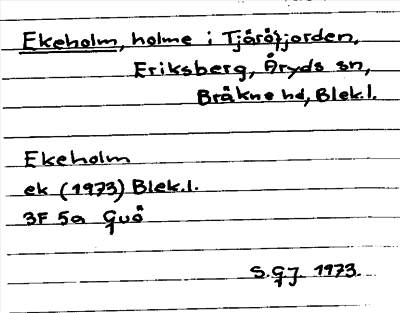 Ekeholm, holme i Tjäröfjorden,
Eriksberg, Åryds sn,
Bräkne hd, Blek.l.
Ekeholm
ek (1973) Blek.l.
3F 5a Guö
S.GJ. 1973.